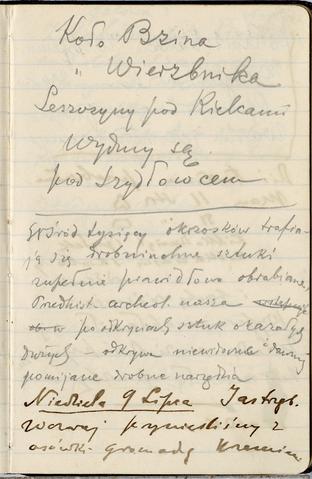 Koło Bzina
" Wierzbnika
Leszczyny pod Kielcami
Wydmy są
pod Szydłowcem
Wśród tysięcy okrzosków trafia-
ją się drobniuchne sztuki
zupełnie prawidłowo obrabiane.
Prehist. archeol. nasza
po odkryciach sztuk okazałych
dużych – odkrywa niewidziane dawniej
pomijane drobne narzędzia
Niedziela 9 Lipca Jastrzęb.
Wczoraj przynieśliśmy z
osówki gromadę krzemieni